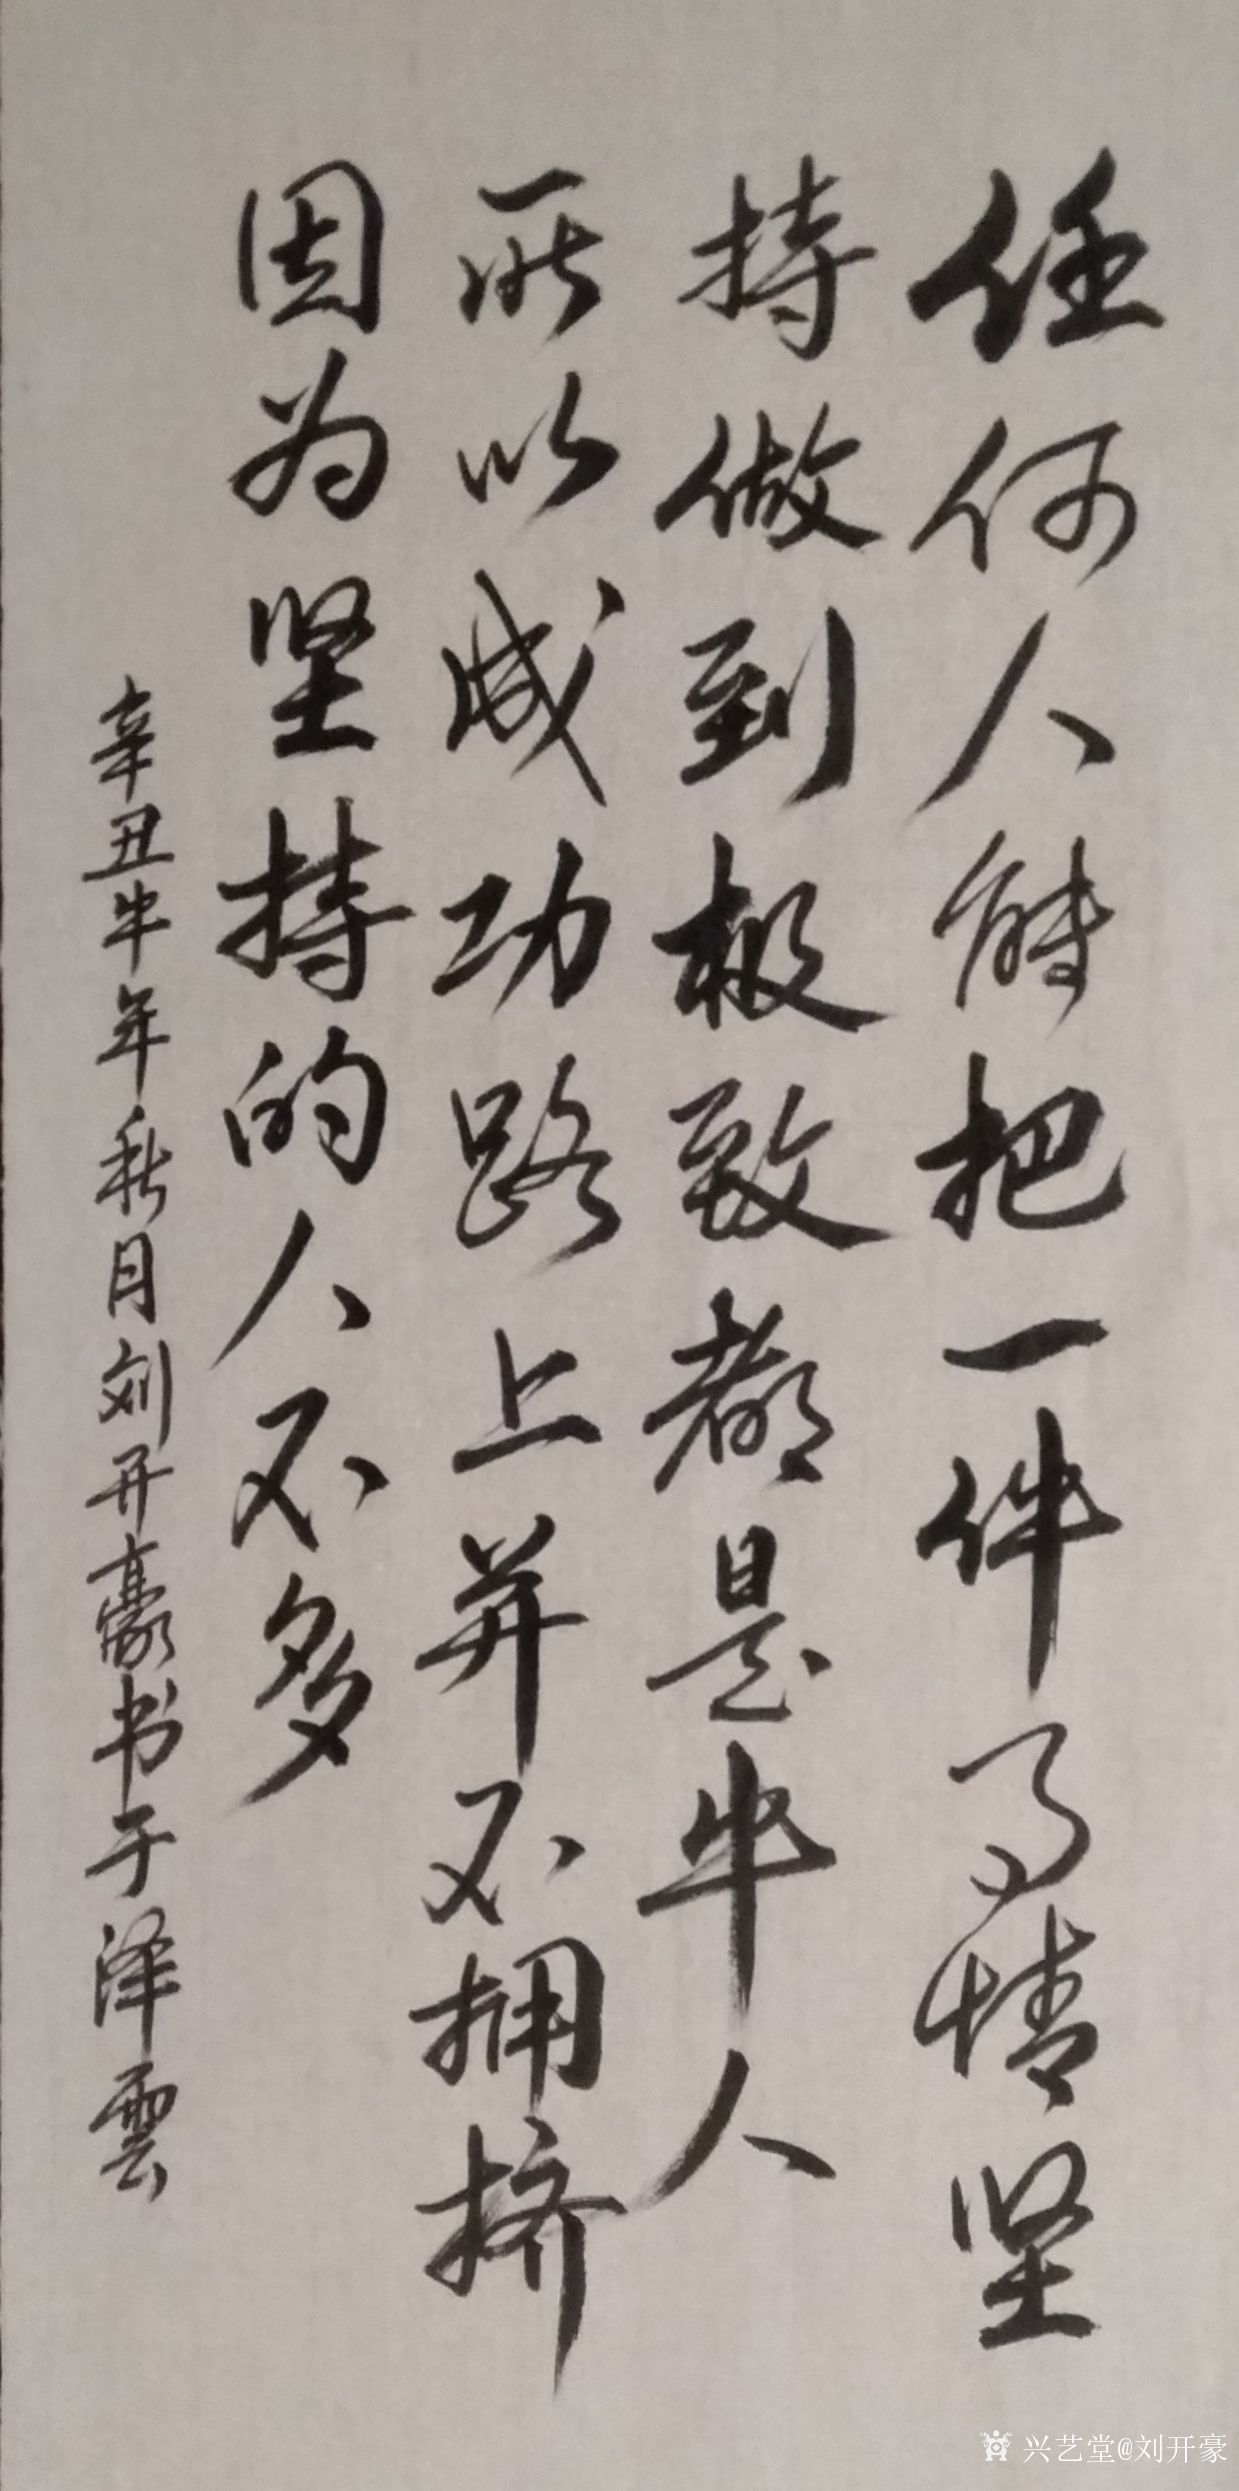 任何人能把一件事情坚
持做到极致都是牛人
所以成功路上并不拥挤
因为坚持的人不多
辛丑牛年秋月刘开豪书于泽雲
兴艺堂@刘开豪